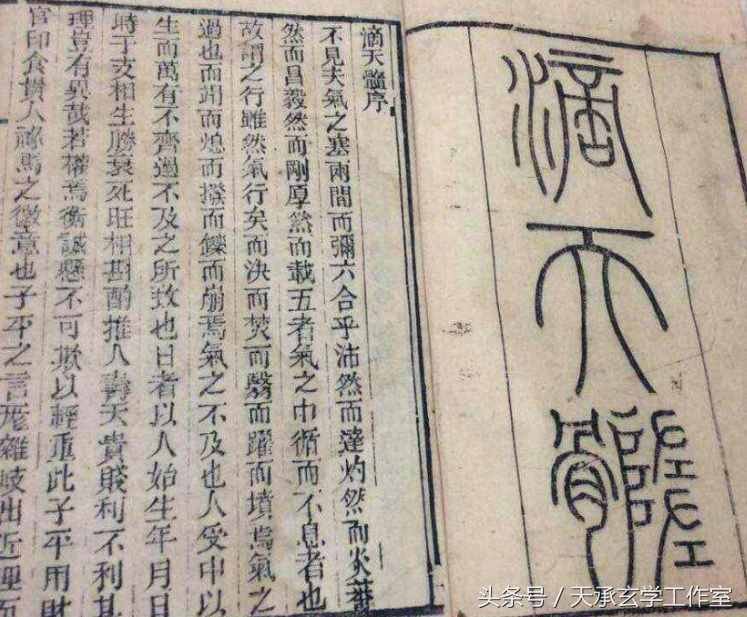 滴天髓
滴天髓序
不見夫氣之塞兩間而彌六合乎沛然而達灼然而炎
然而昌毅然而剛厚然而載五者氣之中循而不息者也
故謂之行雖然氣行矣而決而焚而翳而躍而墳焉氣之
過也而涸而熄而撥而而崩焉氣之不及也人受中以
生而萬有不齊過不及之所致也日者以人始生年月日
時干支相生勝衰死旺相斟酌推人壽夭貴賤利不利其
理豈有異哉若權焉衡誠懸不可欺以輕重此子平用財
官印食貴人祿馬之微意也子平之言厖雜岐出近理而
头条号 / 天承玄学工作室